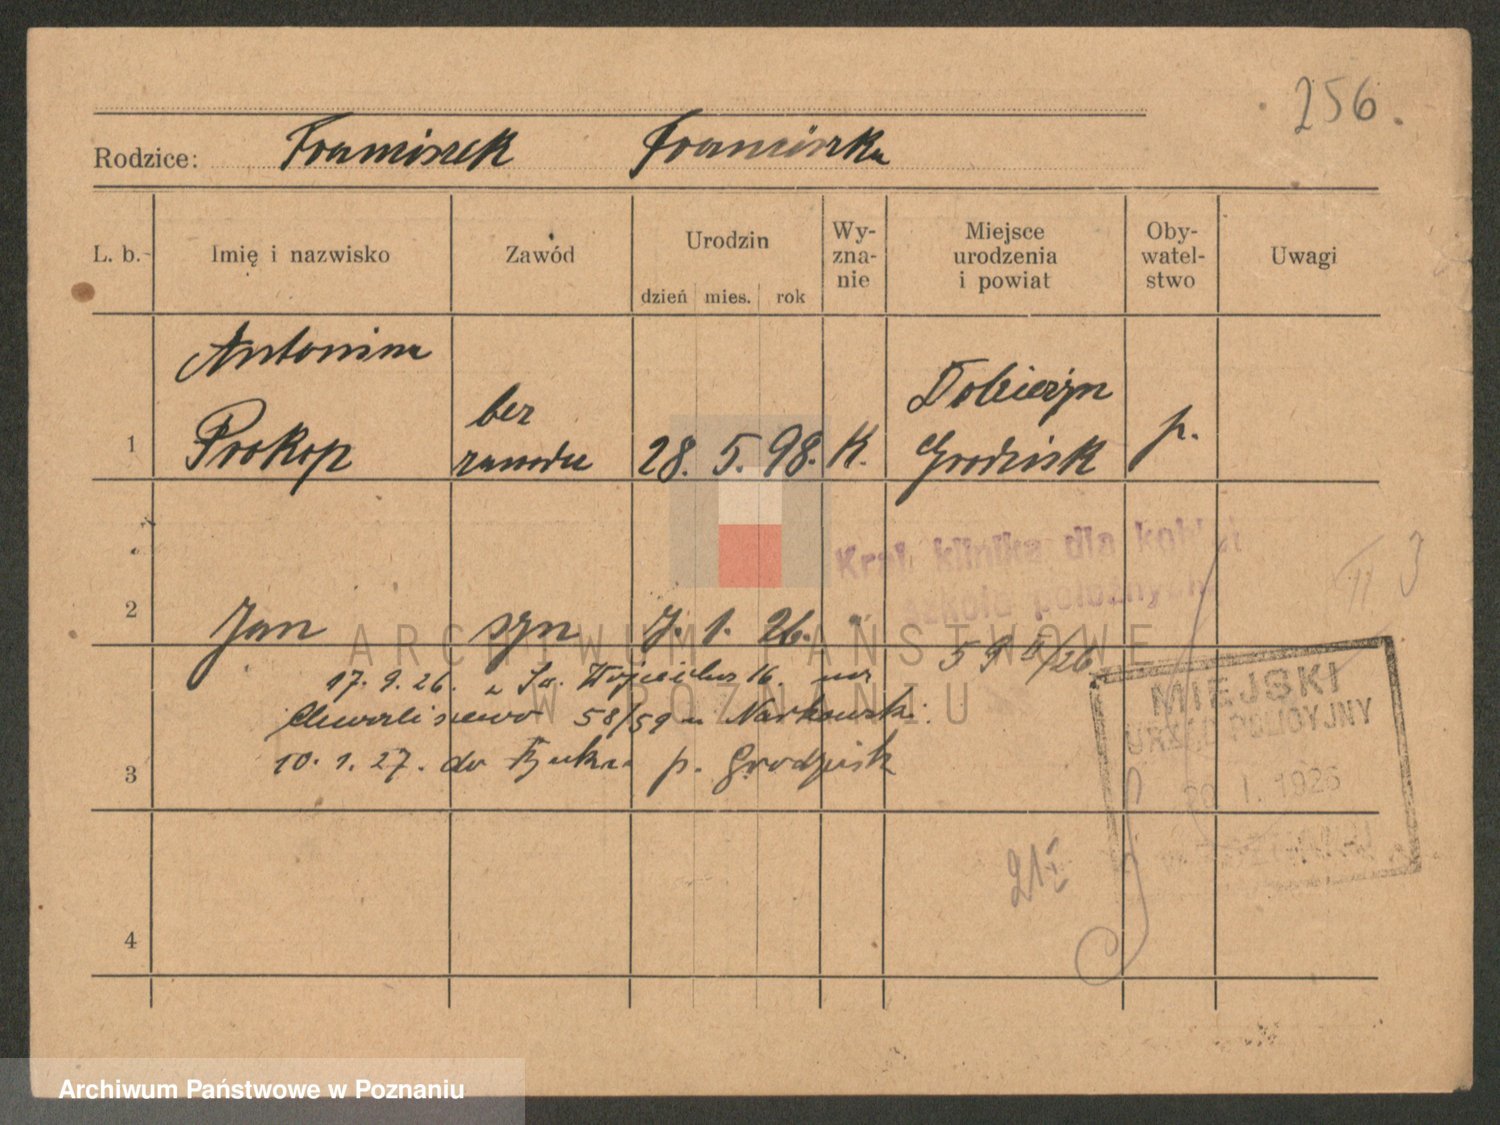 256.
Rodzice: Franciszek Franciszka
L. b. Imię i nazwisko Zawód Urodzin Wy-zna-nie Miejsce urodzenia i powiat Oby-watel-stwo Uwagi
dzień mies. rok
Antonina
Prokop
bez
zawodu
1 28. 5. 98. K.
Dobieżyn
Grodzisk
p.
Kraj. klinika dla kobiet
szkoła położnych
2 Jan syn 7. 1. 26. "
59 II/26
17. 9. 26. z Św. Wojciecha 16. na
Chwaliszewo 58/59 u Narkowski.
3 10. 1. 27. do Buku p. Grodzisk
MIEJSKI
URZĄD POLICYJNY
20. I. 1926
21 I
4
ARCHIWUM PAŃSTWOWE
W POZNANIU
Archiwum Państwowe w Poznaniu